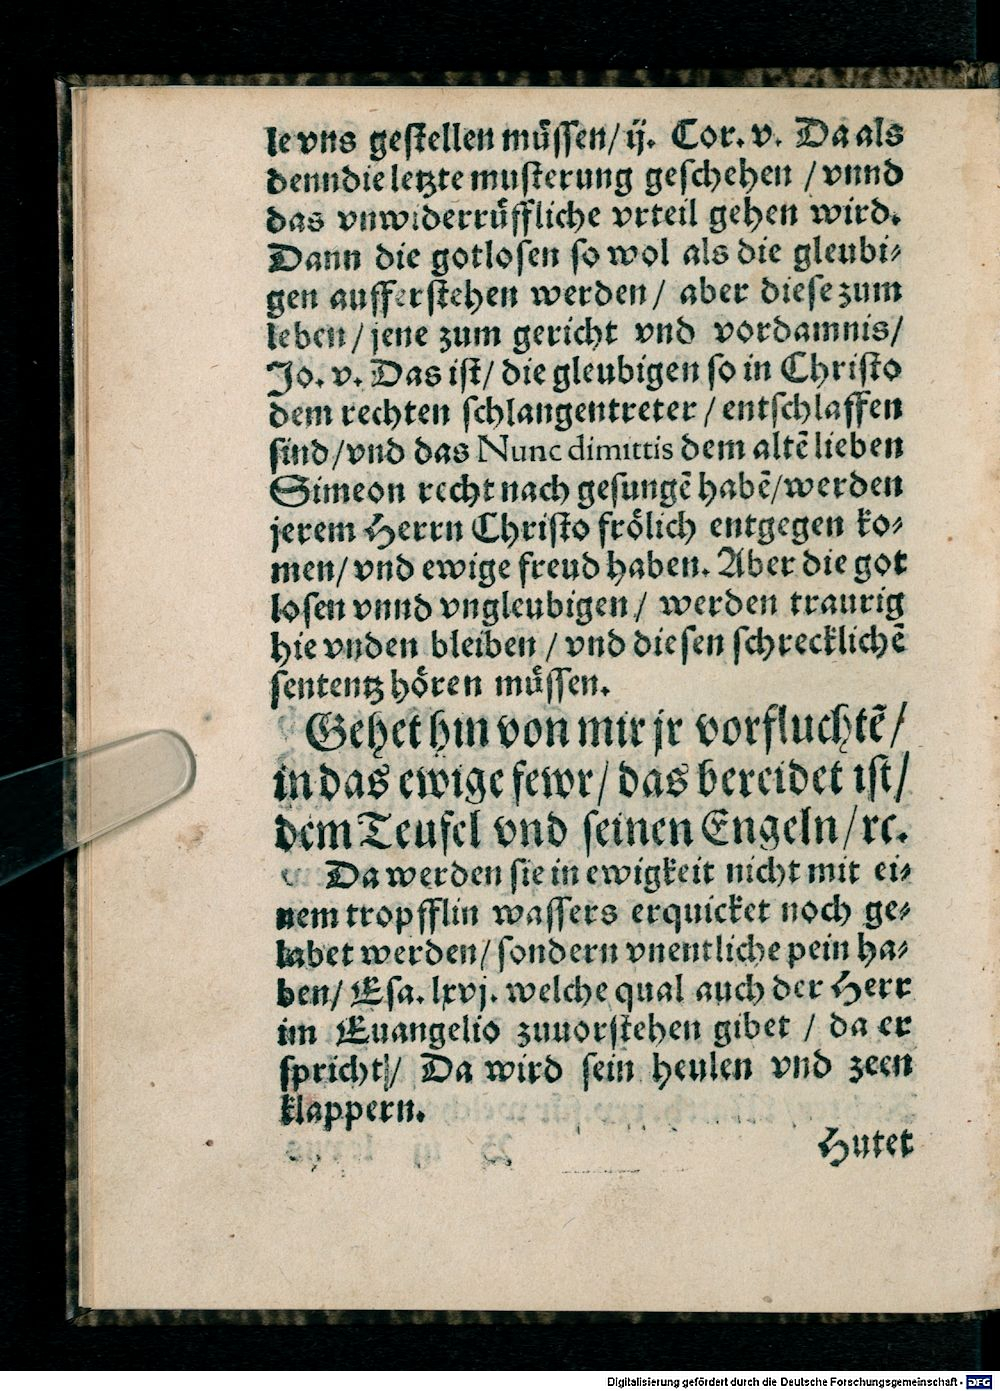 le vns gestellen müssen/ ij. Cor. v. Da als
denn die letzte musterung geschehen / vnnd
das vnwiderrüffliche vrteil gehen wird.
Dann die gotlosen so wol als die gleubi⸗
gen aufferstehen werden/ aber diese zum
leben/ jene zum gericht vnd vordamnis/
Jo. v. Das ist/ die gleubigen so in Christo
dem rechten schlangentreter / entschlaffen
sind/ vnd das Nunc dimittis dem altē lieben
Simeon recht nach gesungē habē/ werden
jerem Herrn Christo frölich entgegen ko⸗
men/ vnd ewige freud haben. Aber die got
losen vnnd vngleubigen/ werden traurig
hie vnden bleiben / vnd diesen schrecklichē
sententz hören müssen.
Gehet hin von mir jr vorfluchtē/
in das ewige fewr/ das bereidet ist/
dem Teufel vnd seinen Engeln/ ꝛc.
Da werden sie in ewigkeit nicht mit ei⸗
nem tropfflin wassers erquicket noch ge⸗
labet werden/ sondern vnentliche pein ha⸗
ben/ Esa. lxvj. welche qual auch der Herr
im Euangelio zuuorstehen gibet / da er
spricht/ Da wird sein heulen vnd zeen
klappern.
Hutet
Digitalisierung gefördert durch die Deutsche Forschungsgemeinschaft - DFG